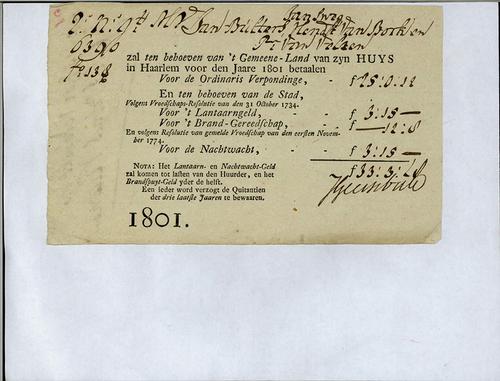 Jan
2: N: 9: Jan Hendk Van Bork en
6390 Van Velsen
fo 138
zal ten behoeven van 't Gemeene-Land van zyn HUYS
in Haarlem voor den Jaare 1801 betaalen
Voor de Ordinaris Verpondinge, - f 25:0:12
En ten behoeven van de Stad,
Volgens Vroedschaps-Resolutie van den 31 October 1734.
Voor 't Lantaarngeld, - - f 3:15:—
Voor 't Brand-Gereedschap, - f —:12:8
En volgens Resolutie van gemelde Vroedschap van den eersten Novem-
ber 1774.
Voor de Nachtwacht, - - f 3:15:—
NOTA: Het Lantaarn- en Nachtwacht-Geld
zal komen tot lasten van den Huurder, en het
Brandspuyt-Geld yder de helft.
Een ieder word verzogt de Quitantien
der drie laatste Jaaren te bewaaren.
1801.